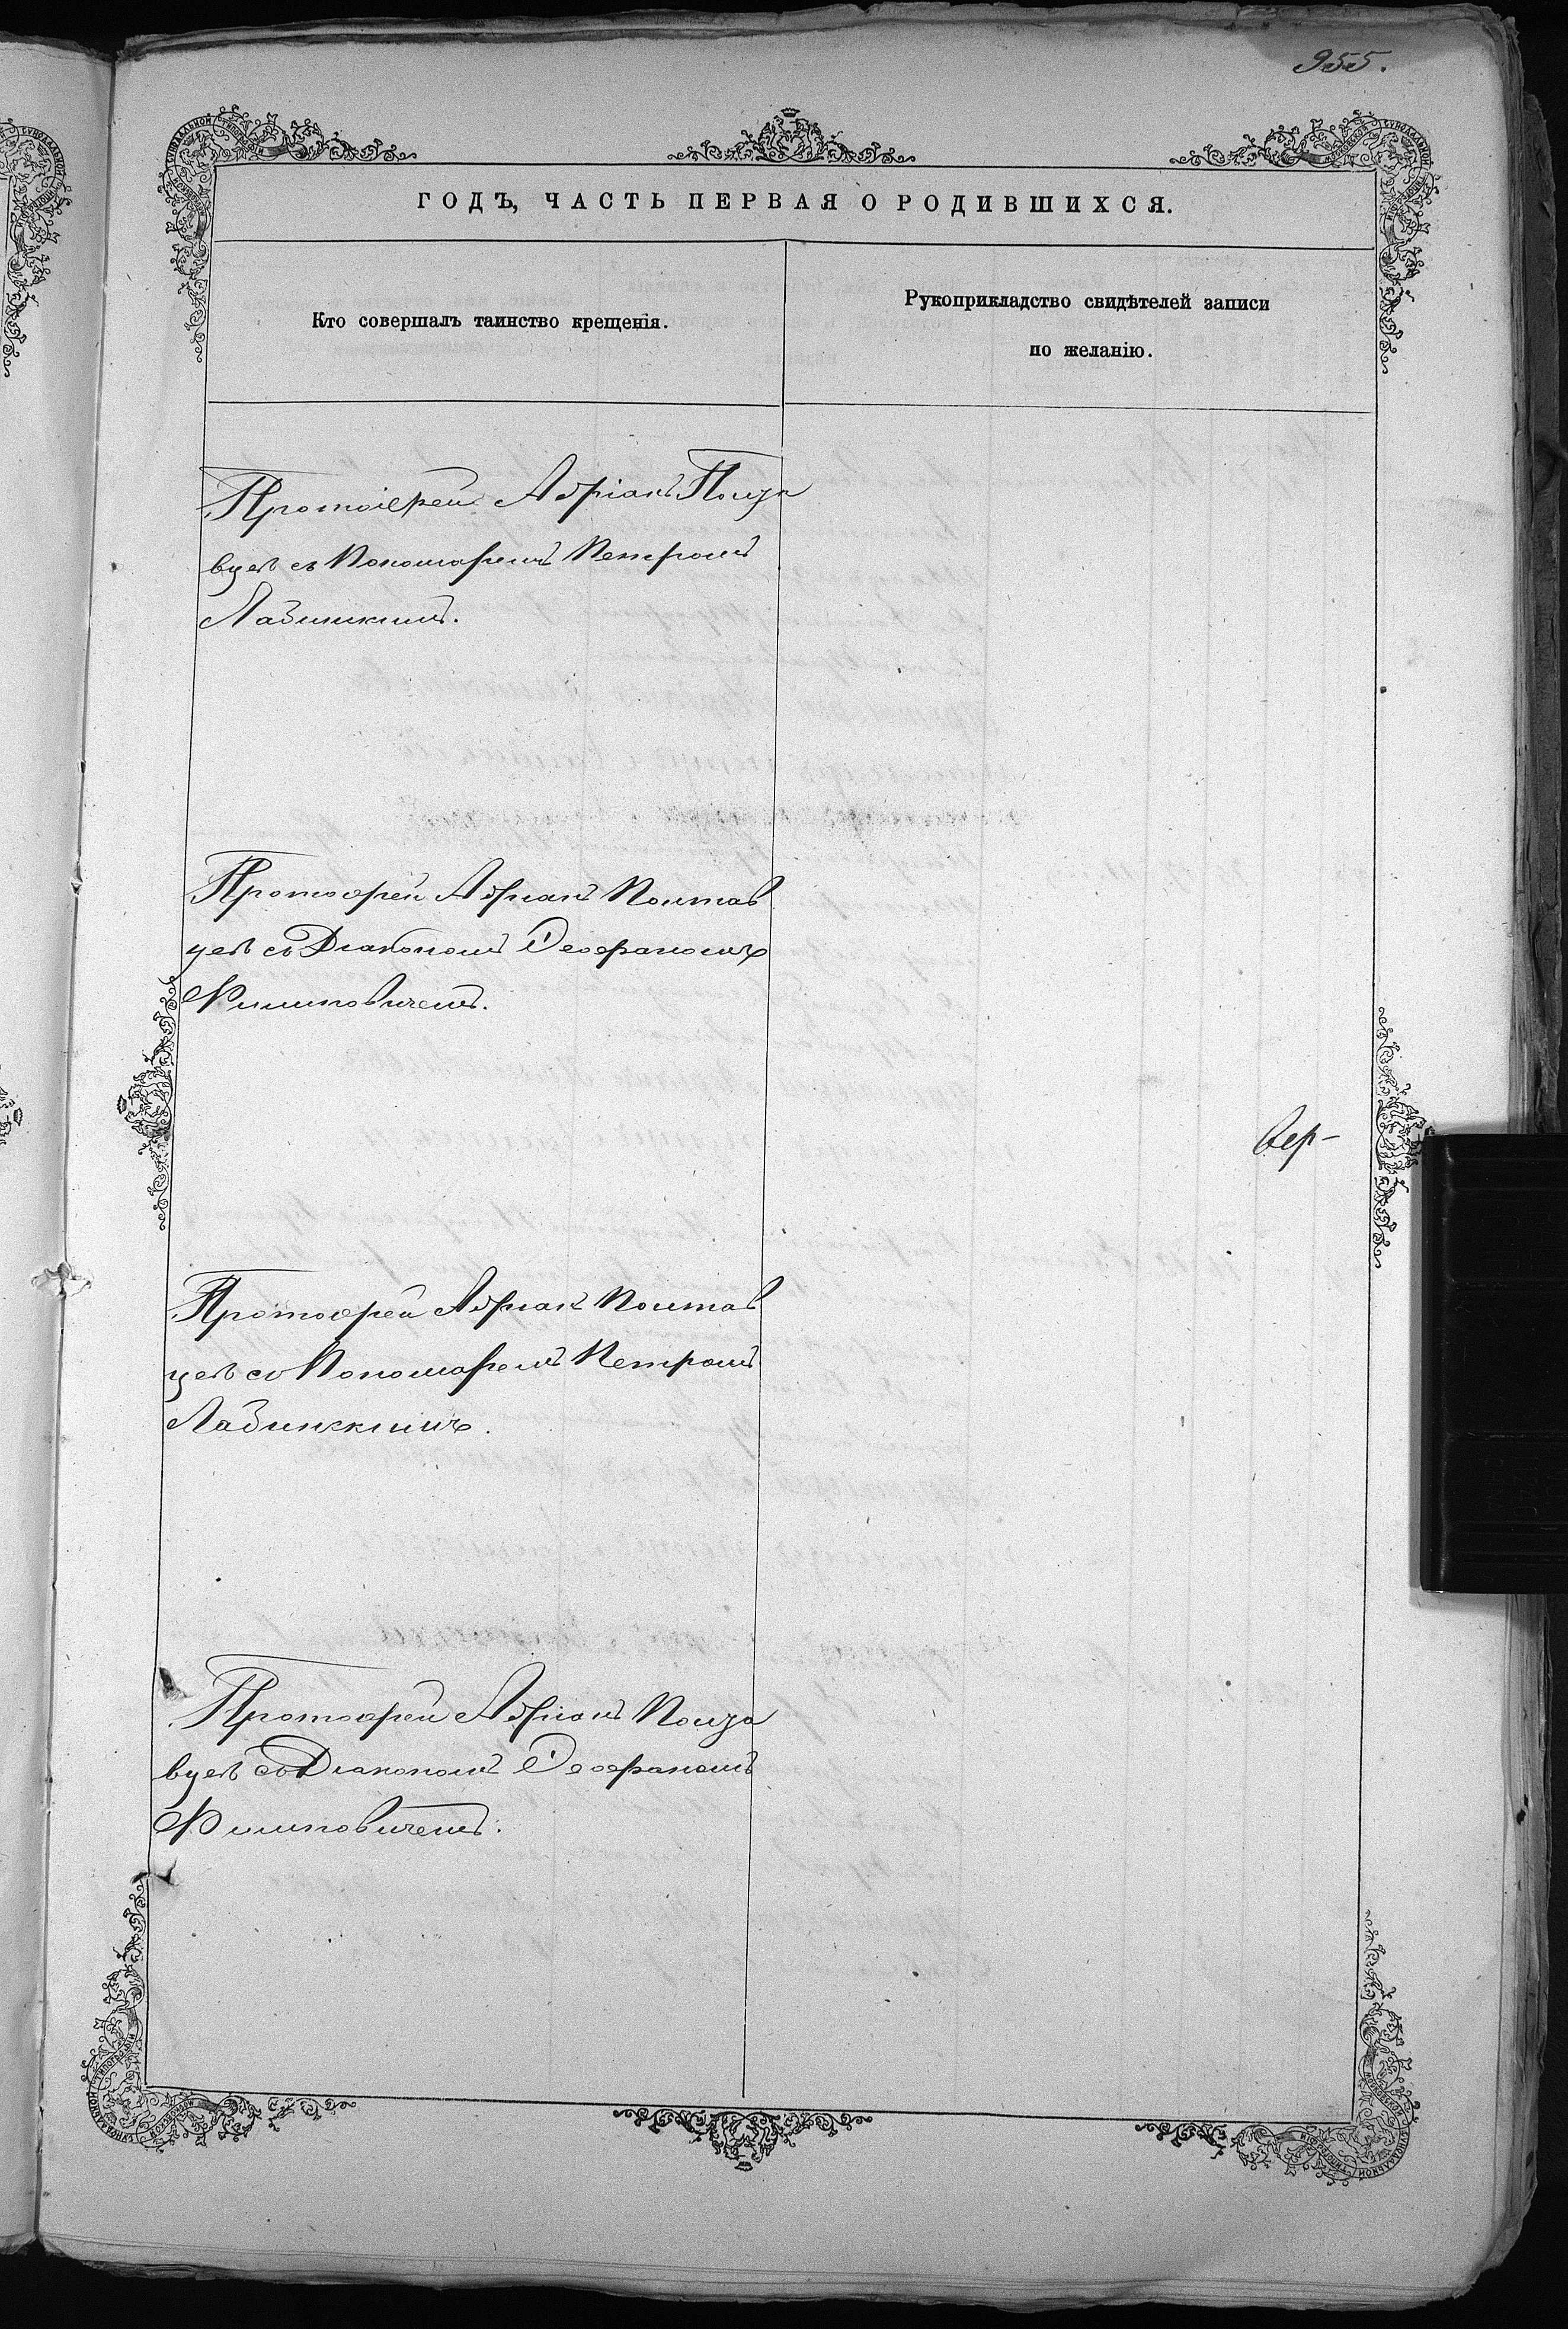 955.
ГОДЪ, ЧАСТЬ ПЕРВАЯ О РОДИВШИХСЯ.
Кто совершалъ таинство крещенія.
Рукоприкладство свидѣтелей записи
по желанію.
Протоіерей Адріанъ Полта
вцевъ съ Пономаремъ Петромъ
Лабинскимъ.
Протоіерей Адріанъ Полтав
цевъ съ Діакономъ Ѳеофаномъ
Филиповичемъ.
Вер-
Протоіерей Адріанъ Полтав
цевъ съ Пономаремъ Петромъ
Лабинскимъ.
Протоіерей Адріанъ Полта
вцевъ съ Діакономъ Ѳеофаномъ
Филиповичемъ.